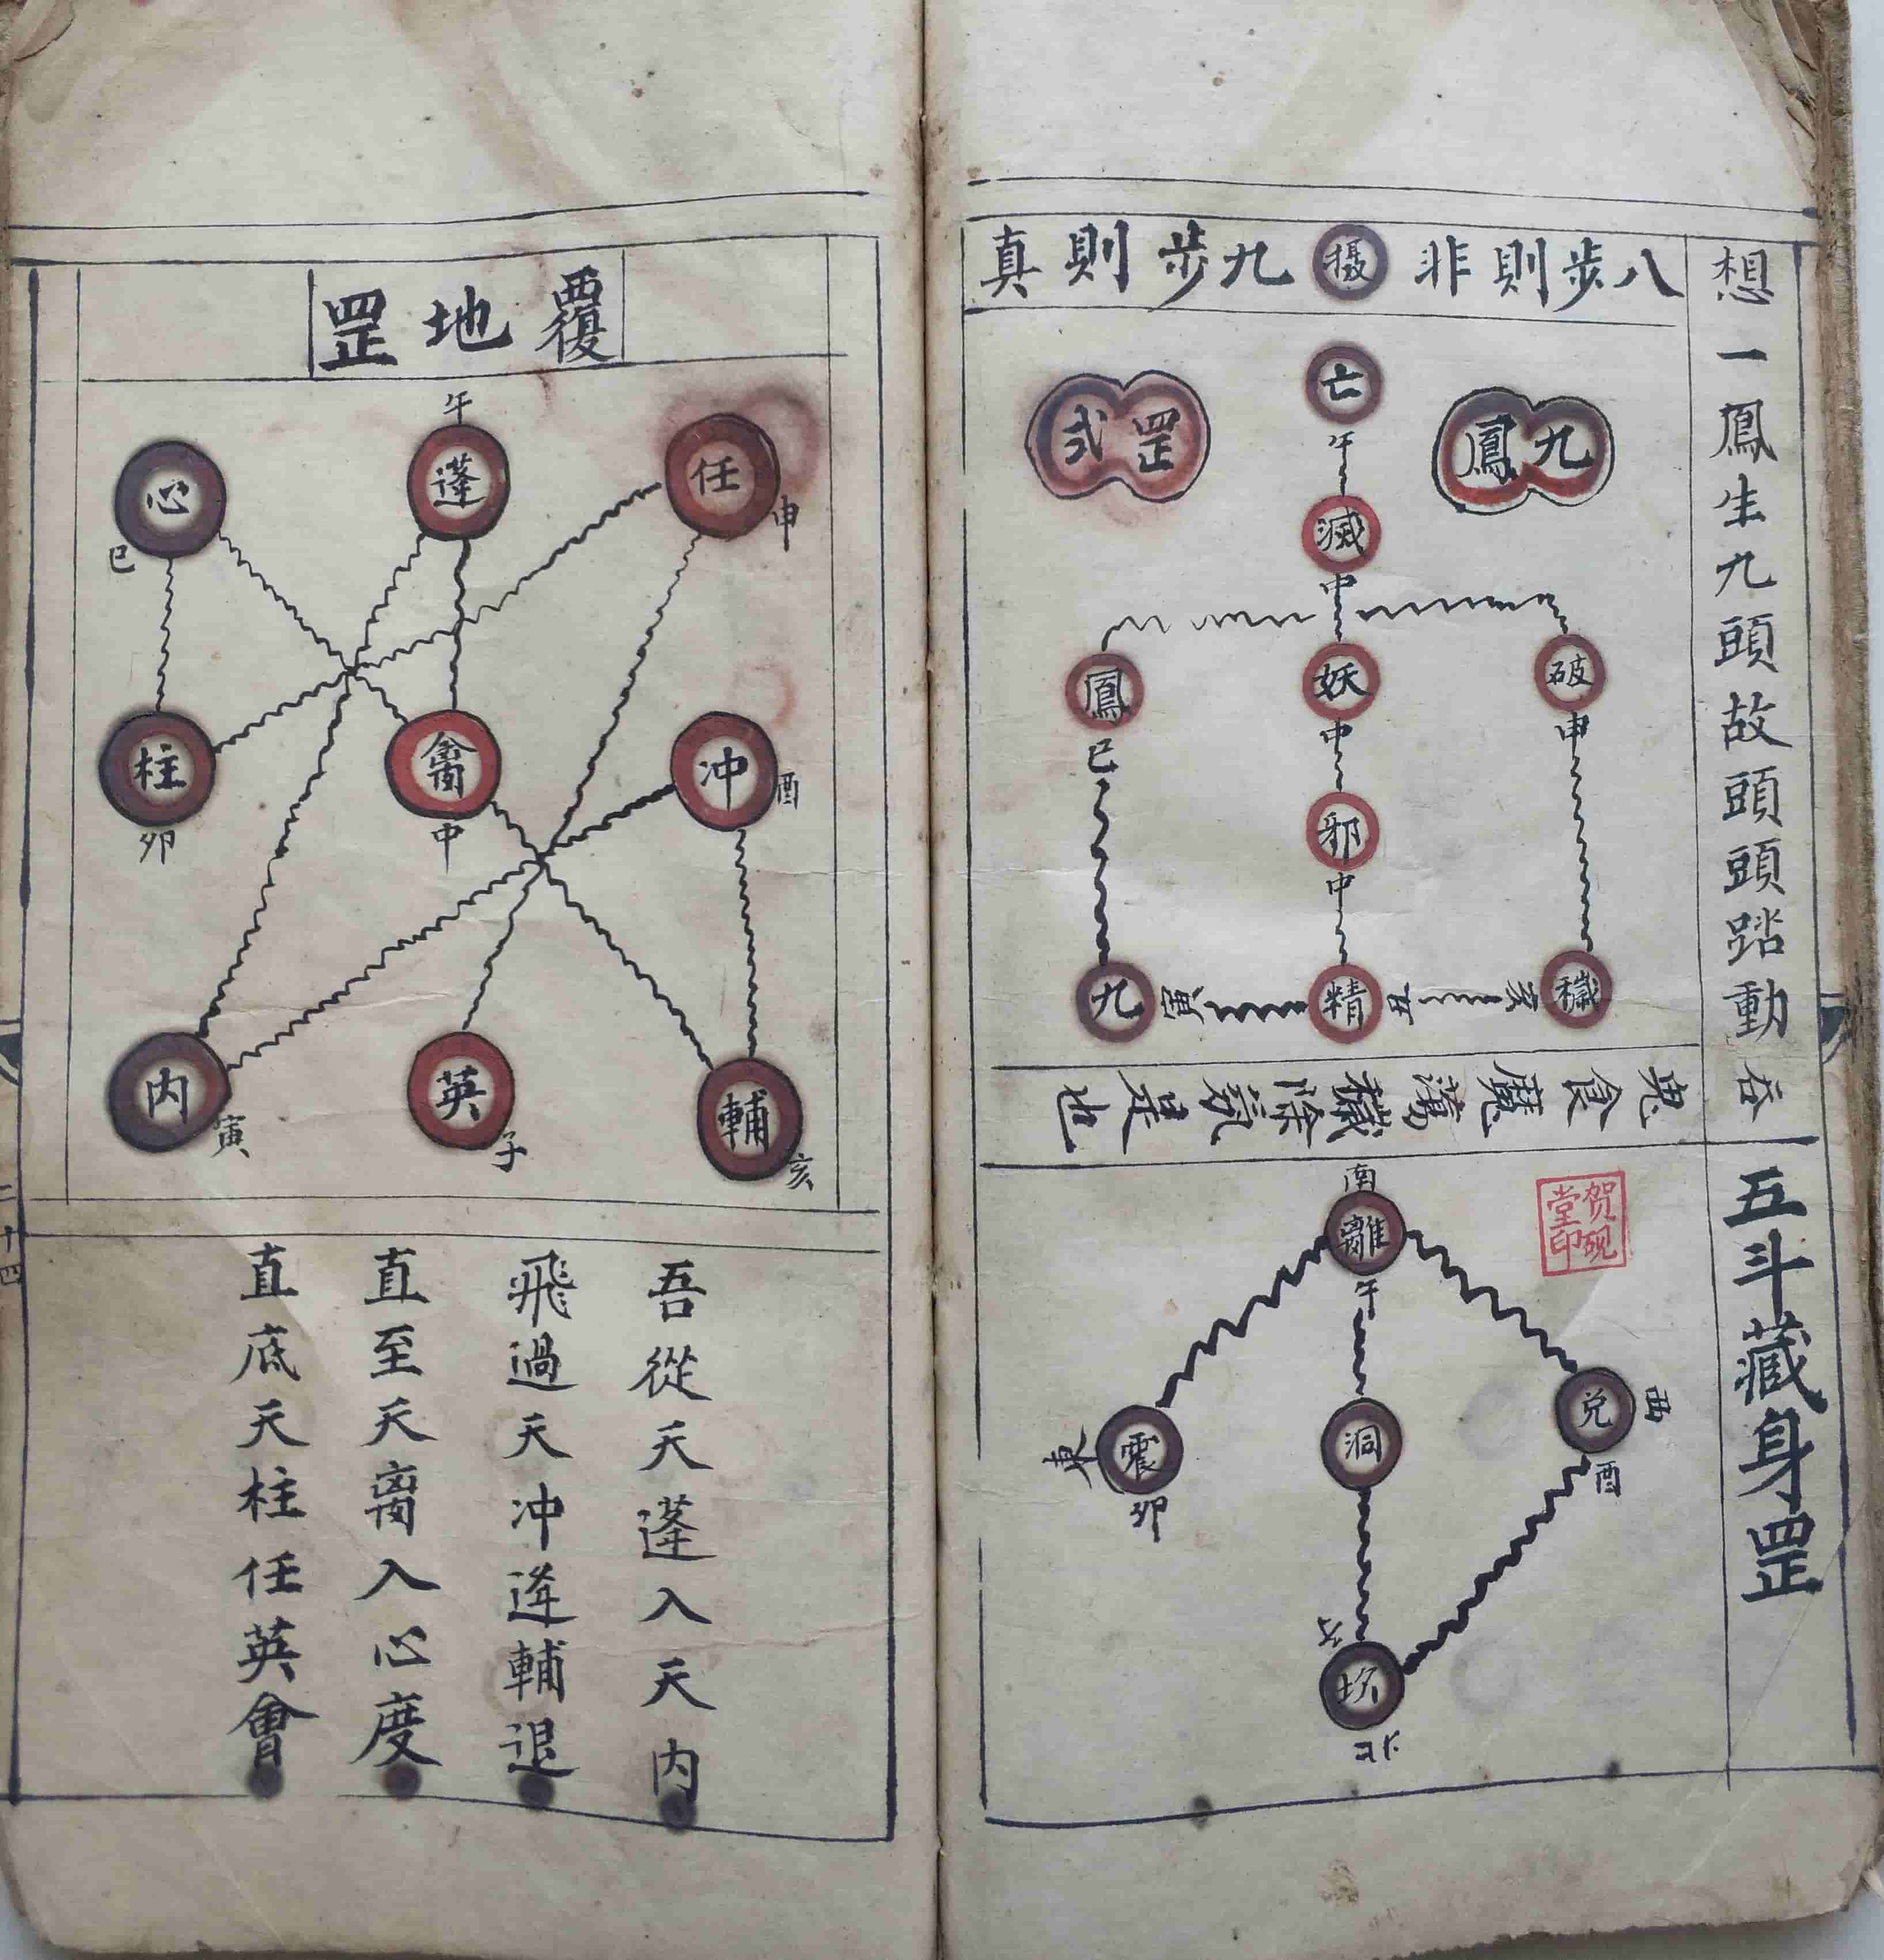 想一鳳生九頭故頭頭踏動吞
鬼食魔蕩穢除氛是也
八步則非攝九步則真
九鳳
罡式
亡
午
滅
中
鳳
巳
妖
中
破
申
邪
中
九
寅
精
丑
亥
穢
五斗藏身罡
賀硯堂印
南
離
午
東
震
卯
洞
兌
西
酉
子
坎
北
覆地罡
心
巳
午
蓬
任
申
柱
卯
禽
中
冲
酉
内
寅
英
子
輔
亥
吾從天蓬入天内
飛過天冲逢輔退
直至天禽入心度
直底天柱任英會
二十四